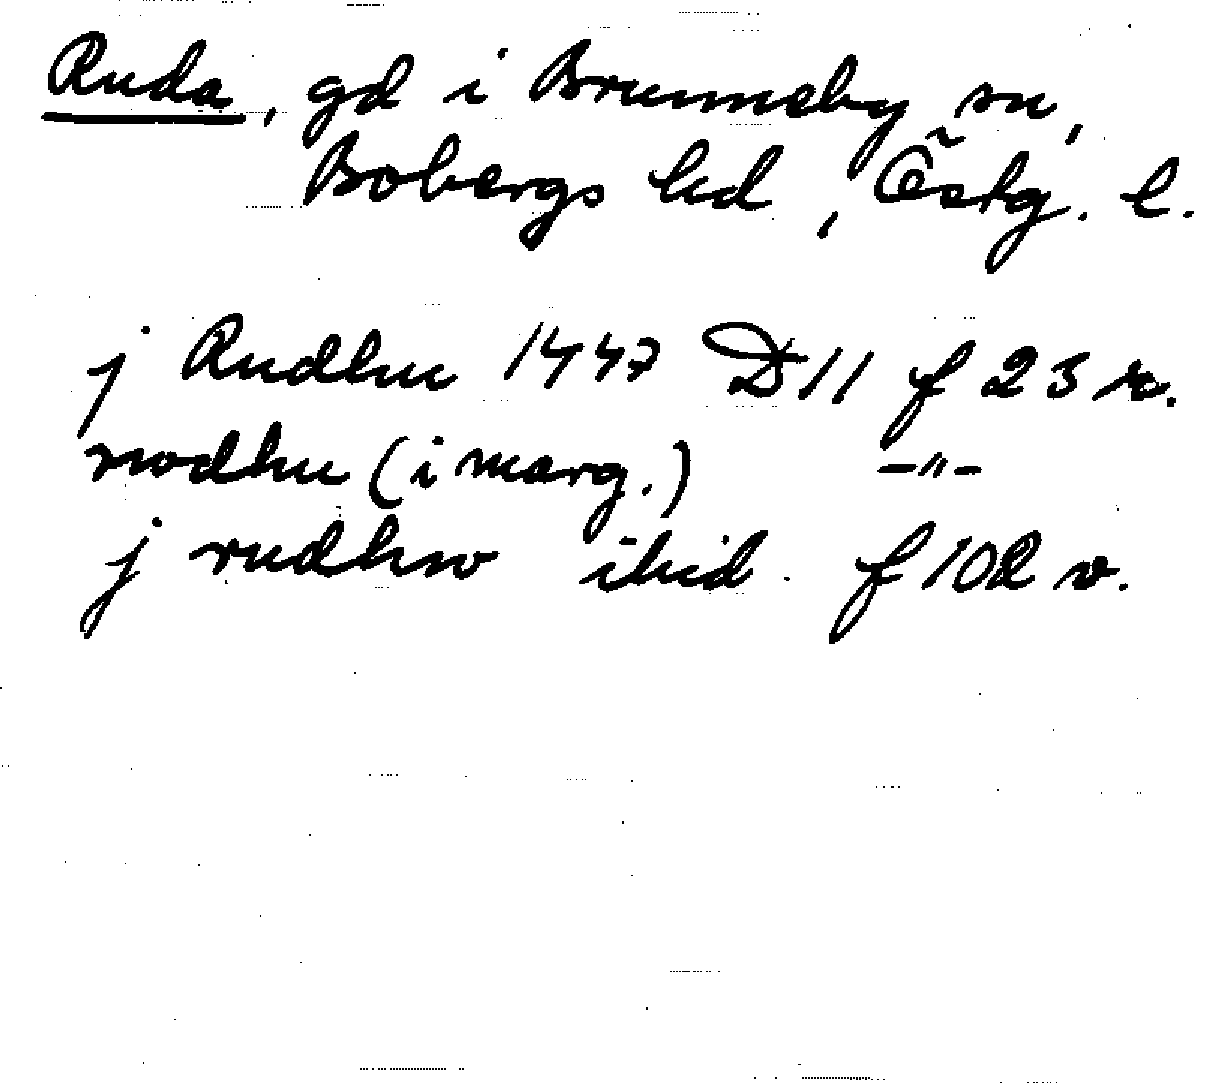 Ruda, gd i Brunneby sn,
Bobergs hd, Östg. l.
j Rudhu 1447 D11 f 23 r.
rwdhu (i marg.) –"–
j rudhw ibid. f 102 v.